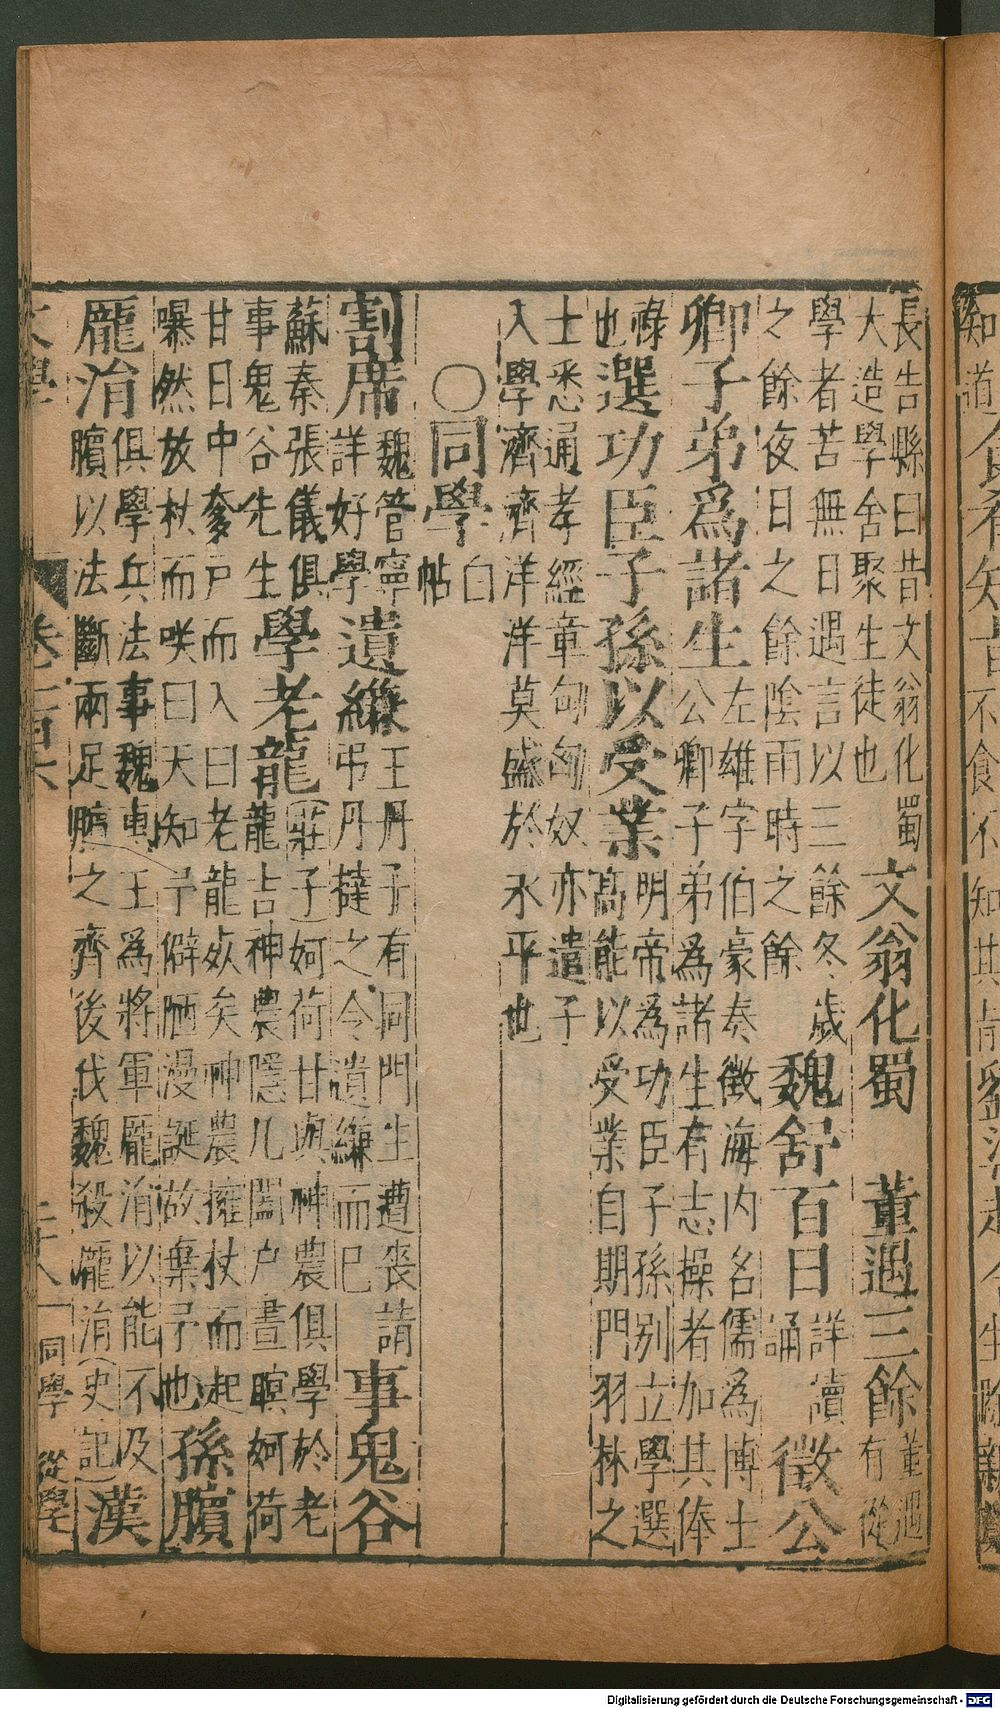 長告縣曰昔文翁化蜀
大造學舍聚生徒也
文翁化蜀 董遇三餘
董遇
有從
學者苦無日遇言以三餘冬歲
之餘夜日之餘陰雨時之餘
魏舒百日
詳讀
誦
徵公
卿子弟爲諸生
左雄字伯豪奏徵海內名儒爲博士
公卿子弟爲諸生有志操者加其俸
祿
也
選功臣子孫以受業
明帝爲功臣子孫別立學選
高能以受業自期門羽林之
士悉通孝經章句匈奴亦遣子
入學濟濟洋洋莫盛於永平也
〇同學
白
帖
割席
魏管寧
詳好學
遺縑
王丹子有同門生遭喪請
弔丹撻之令遺縑而已
事鬼谷
蘇秦張儀俱
事鬼谷先生
學老龍
(莊子)妸荷甘與神農俱學於老
龍吉神農隱几闔户晝瞑妸荷
甘日中奓户而入曰老龍死矣神農擁杖而起
曝然放杖而咲曰天知予僻陋漫誕故棄予也
孫臏
龎涓
俱學兵法事魏惠王爲將軍龎涓以能不及
臏以法斷兩足臏之齊後伐魏殺龎涓(史記)
漢
卷一百六
二十八
同學
從學
知道
Digitalisierung gefördert durch die Deutsche Forschungsgemeinschaft - DFG